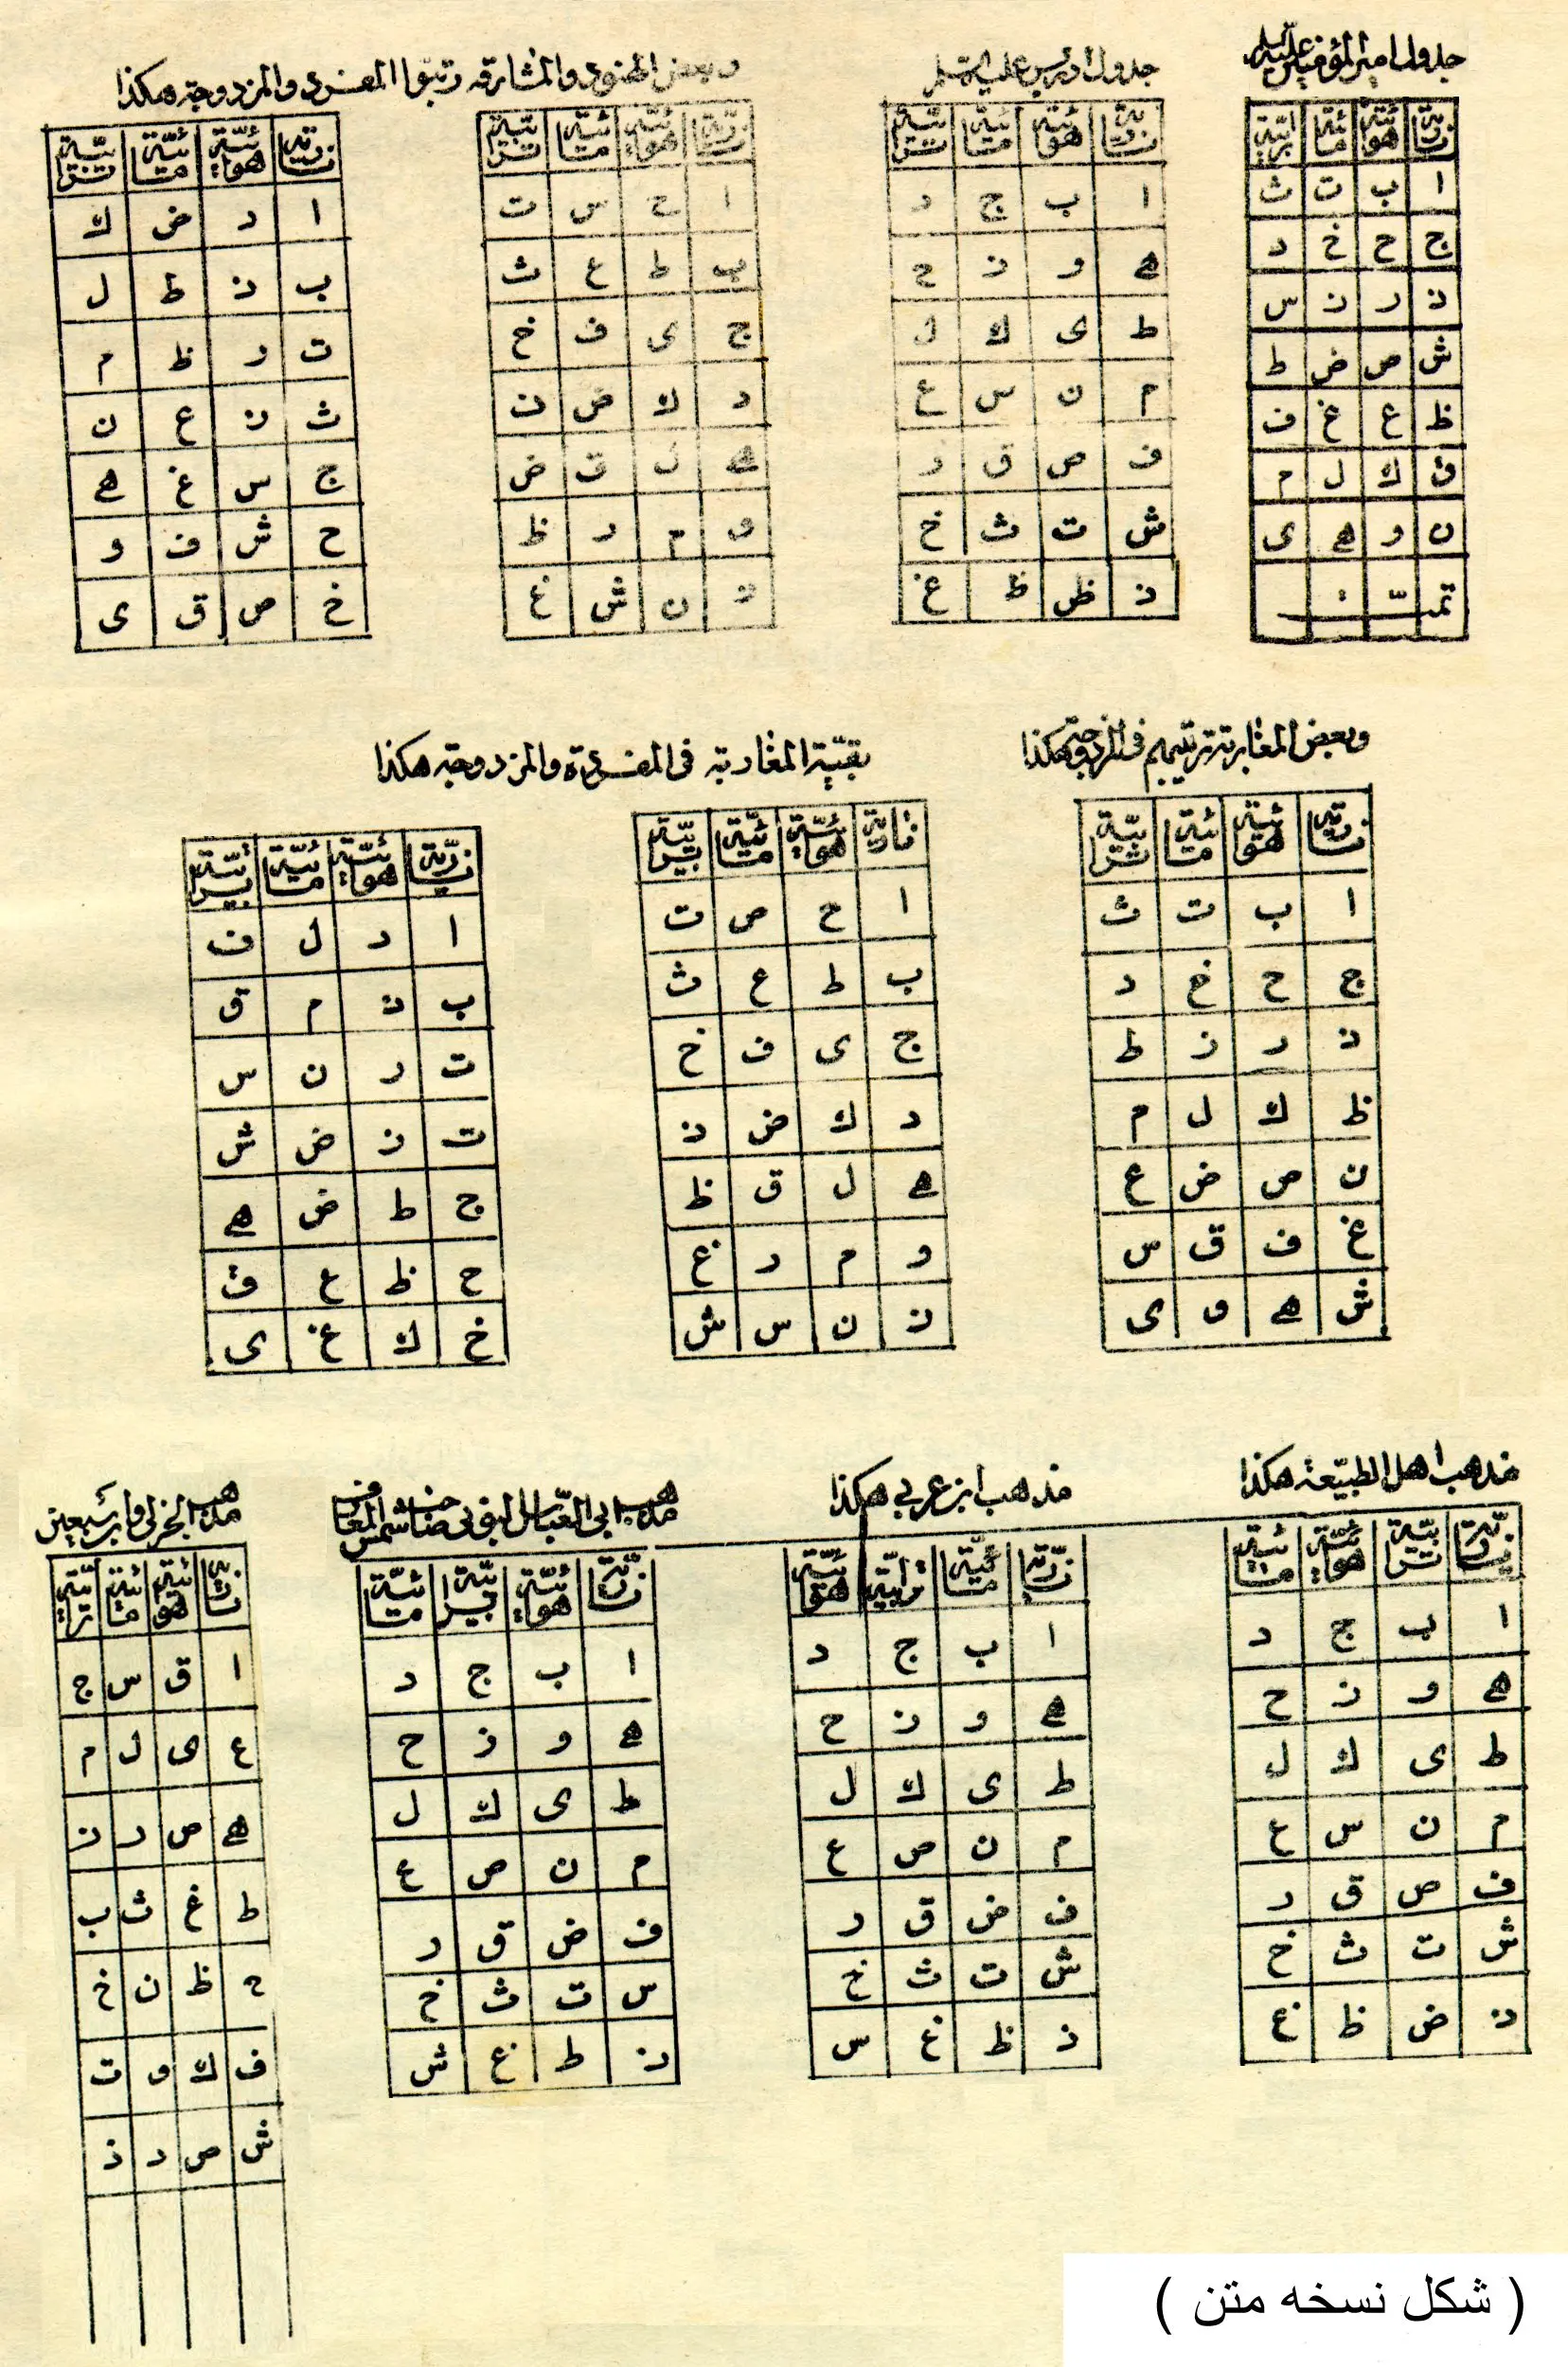 جدول امیر المؤمنین علیه السلم
ناریة هوائیة مائیة ترابیة
ا ب ت ث
ج ح خ د
ذ ر ز س
ش ص ض ط
ظ ع غ ف
ق ك ل م
ن و ه ی
تمت
جدول ادریس علیه السلم
ناریة هوائیة مائیة ترابیة
ا ب ج د
ه و ز ح
ط ی ك ل
م ن س ع
ف ص ق ر
ش ت ث خ
ذ ض ظ غ
وبعض الهنود والمشارقه رتبوا المفردی والمزدوجة هكذا
ناریة هوائیة مائیة ترابیة
ا ح س ت
ب ط ع ث
ج ی ف خ
د ك ص ذ
ه ل ق ض
و م ر ظ
ز ن ش غ
ناریة هوائیة مائیة ترابیة
ا د ض ك
ب ذ ط ل
ت ر ظ م
ث ز ع ن
ج س غ ه
ح ش ف و
خ ص ق ی
وبعض المغاربة ترتیبهم فی المزدوجة هكذا
ناریة هوائیة مائیة ترابیة
ا ب ت ث
ج ح خ د
ذ ر ز ط
ظ ك ل م
ن ص ض ع
غ ف ق س
ش ه و ی
بقیة المغاربة فی المفردة والمزدوجة هكذا
ناریة هوائیة مائیة ترابیة
ا ح ص ت
ب ط ع ث
ج ی ف خ
د ك ض ذ
ه ل ق ظ
و م ر غ
ز ن س ش
ناریة هوائیة مائیة ترابیة
ا د ل ف
ب ذ م ق
ت ر ن س
ت ز ض ش
ج ط ض ه
ح ظ ع و
خ ك غ ی
مذهب اهل الطبیعة هكذا
ناریة ترابیة هوائیة مائیة
ا ب ج د
ه و ز ح
ط ی ك ل
م ن س ع
ف ص ق ر
ش ت ث خ
ذ ض ظ غ
مذهب ابن عربی هكذا
ناریة مائیة ترابیة هوائیة
ا ب ج د
ه و ز ح
ط ی ك ل
م ن ص ع
ف ض ق ر
ش ت ث خ
ذ ظ غ س
مذهب ابی العباس البونی صاحب شمس المعارف
ناریة هوائیة ترابیة مائیة
ا ب ج د
ه و ز ح
ط ی ك ل
م ن ص ع
ف ض ق ر
س ت ث خ
ذ ط غ ش
مذهب وابن سبعین
ناریة هوائیة مائیة ترابیة
ا ق س ج
ع ی ل م
ه ص ر ز
ط غ ث ب
ح ظ ن خ
ف ك و ت
ش ص د ذ
( شكل نسخه متن )